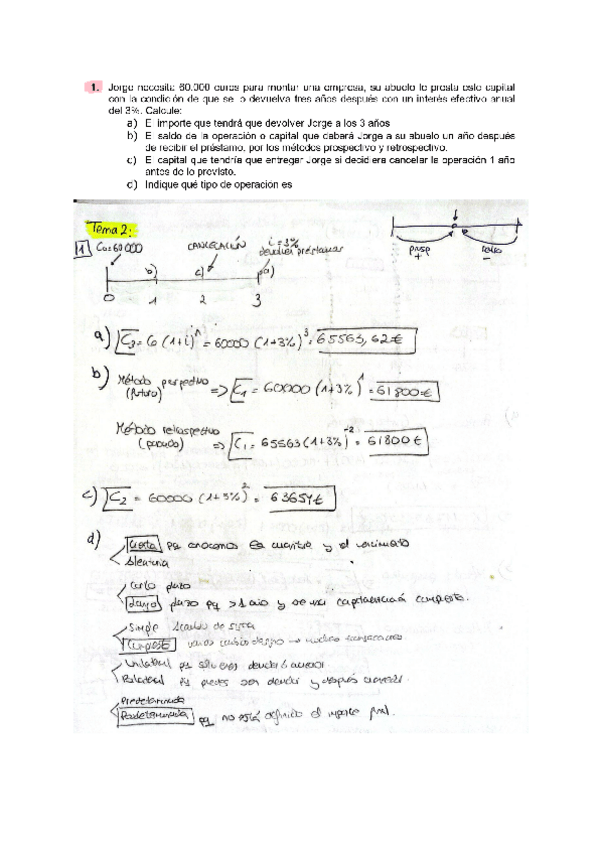 1. Jorge necesita 60.000 euros para montar una empresa, su abuelo le presta este capital
con la condición de que se lo devuelva tres años después con un interés efectivo anual
del 3%. Calcule:
a) El importe que tendrá que devolver Jorge a los 3 años
b) El saldo de la operación o capital que deberá Jorge a su abuelo un año después
de recibir el préstamo, por los métodos prospectivo y retrospectivo.
c) El capital que tendría que entregar Jorge si decidiera cancelar la operación 1 año
antes de lo previsto.
d) Indique qué tipo de operación es
Tema 2:
1 Co=60 000 CANCELACIÓN i=3%
devolver préstamo
b) c) a)
0 1 2 3
prosp
+ retro
-
a) C3 = Co (1+i)^n = 60000 (1+3%)^3 = 65563,62€
b) Método perspectivo (futuro) => C1 = 60000 (1+3%)^1 = 61800€
Método retrospectivo (pasado) => C1 = 65563 (1+3%)^-2 = 61800€
c) C2 = 60000 (1+3%)^2 = 63654€
d) Cierta pq conocemos la cuantía y el vencimiento
Aleatoria
Corto plazo
Largo plazo pq >1 año y se usa capitalización compuesta.
Simple
Compuesta
Unilateral pq deudor o acreedor
Bilateral pq puedes ser deudor y después acreedor.
Predeterminada
Posdeterminada pq no está definido el importe final.